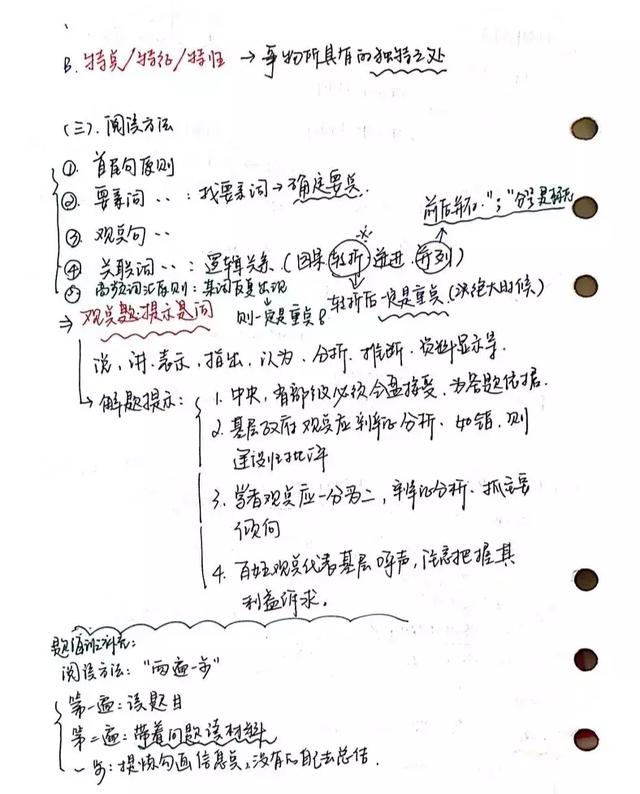 B. 特点/特征/特性 → 事物所具有的独特之处
(三). 阅读方法
① 首尾句原则
② 要素词 〃 : 找要素词 → 确定要点.
③ 观点句 〃
前后并列."；"分号是标志
④ 关联词 〃 : 逻辑关系 (因果 转折 递进 并列)
⑤ 高频词汇原则: 某词反复出现
则一定是重点。
转折后一定是重点 (绝大时候)
⇒ 观点题提示是词
说, 讲. 表示, 指出, 认为. 分析. 推断. 资料显示等.
→ 解题提示:
1. 中央, 省部级必须全盘接受, 为答题依据.
2. 基层政府观点应辩证分析. 如错, 则
建设性批评
3. 学者观点应一分为二, 辩证分析. 抓主要
倾向
4. 百姓观点代表基层呼声, 注意把握其
利益诉求.
阅读方法: "两遍一步"
第一遍: 读题目
第二遍: 带着问题读材料
一步: 提炼勾画信息点, 没有的自己去总结.